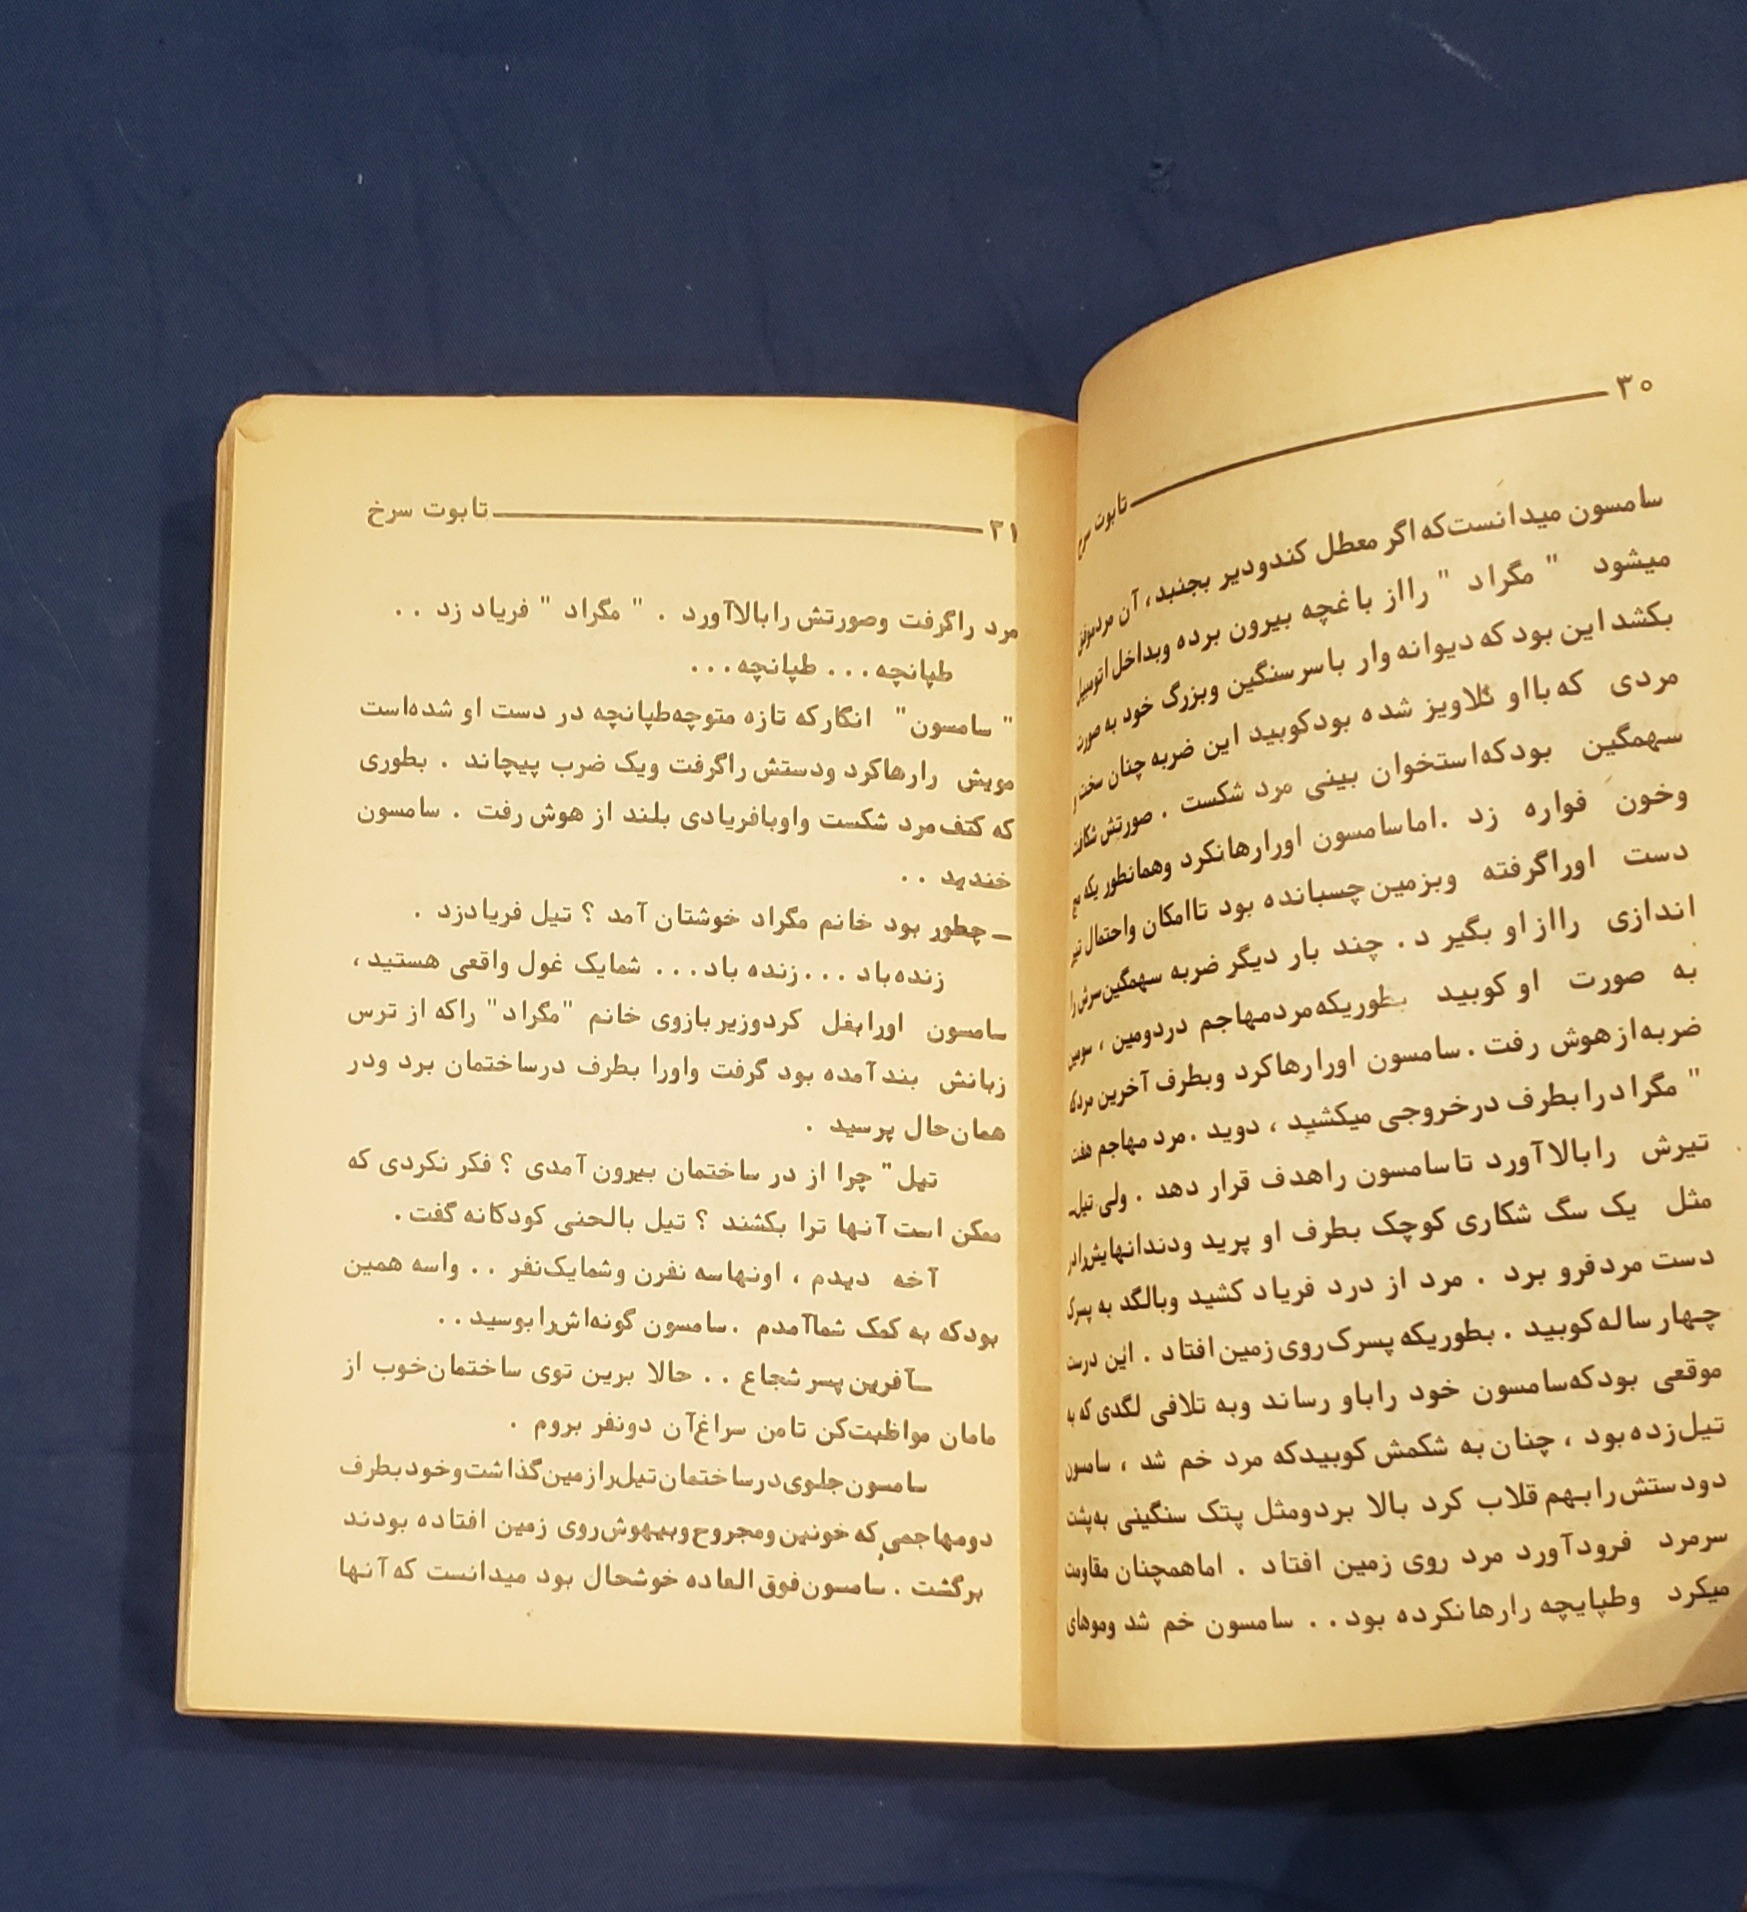 ۳۰ تابوت سرخ
سامسون میدانست که اگر معطل کند ودیر بجنبد، آن مرد موفق
میشود " مگراد " رااز باغچه بیرون برده وبداخل اتومبیل
بکشد این بود که دیوانه وار باسر سنگین وبزرگ خود به صورت
مردی که بااو گلاویز شده بود کوبید این ضربه چنان سخت و
سهمگین بود که استخوان بینی مرد شکست . صورتش شکافت
وخون فواره زد . اما سامسون اورارها نکرد وهمانطوریکه مچ
دست اوراگرفته وبزمین چسبانده بود تاامکان واحتمال تیر
اندازی رااز او بگیر د . چند بار دیگر ضربه سهمگین سرش را
به صورت او کوبید بطوریکه مرد مهاجم در دومین ، سومین
ضربه از هوش رفت . سامسون اورارها کرد وبطرف آخرین مرد که
" مگراد را بطرف در خروجی میکشید ، دوید . مرد مهاجم هفت
تیرش رابالا آورد تا سامسون راهدف قرار دهد . ولی تیل ـ
مثل یک سگ شکاری کوچک بطرف او پرید ودندانهایش رادر
دست مرد فرو برد . مرد از درد فریاد کشید وبالگد به پسرک
چهار ساله کوبید . بطوریکه پسرک روی زمین افتاد . این درست
موقعی بود که سامسون خود راباو رساند وبه تلافی لگدی که به
تیل زده بود ، چنان به شکمش کوبید که مرد خم شد ، سامسون
دودستش رابهم قلاب کرد بالا برد ومثل پتک سنگینی به پشت
سر مرد فرود آورد مرد روی زمین افتاد . اما همچنان مقاومت
میکرد وطپایچه رارها نکرده بود . . سامسون خم شد وموهای
۳۱ تابوت سرخ
مرد راگرفت وصورتش رابالا آورد . " مگراد " فریاد زد . .
طپانچه . . . طپانچه . . .
" سامسون" انگار که تازه متوجه طپانچه در دست او شده است
مویش رارها کرد ودستش راگرفت ویک ضرب پیچاند . بطوری
که کتف مرد شکست واوبا فریادی بلند از هوش رفت . سامسون
خندید . .
ـ چطور بود خانم مگراد خوشتان آمد ؟ تیل فریادزد .
زنده باد . . . زنده باد . . . شما یک غول واقعی هستید ،
سامسون اورابغل کرد وزیر بازوی خانم "مگراد" راکه از ترس
زبانش بند آمده بود گرفت واورا بطرف در ساختمان برد ودر
همان حال پرسید .
تیل" چرا از در ساختمان بیرون آمدی ؟ فکر نکردی که
ممکن است آنها ترا بکشند ؟ تیل بالحنی کودکانه گفت .
آخه دیدم ، اونها سه نفرن و شما یک نفر . . واسه همین
بود که به کمک شما آمدم . سامسون گونه اش رابوسید . .
ـ آفرین پسر شجاع . . حالا برین توی ساختمان خوب از
مامان مواظبت کن تا من سراغ آن دونفر بروم .
سامسون جلوی در ساختمان تیل رازمین گذاشت وخود بطرف
دومهاجمی که خونین ومجروح وبیهوش روی زمین افتاده بودند
برگشت . سامسون فوق العاده خوشحال بود میدانست که آنها